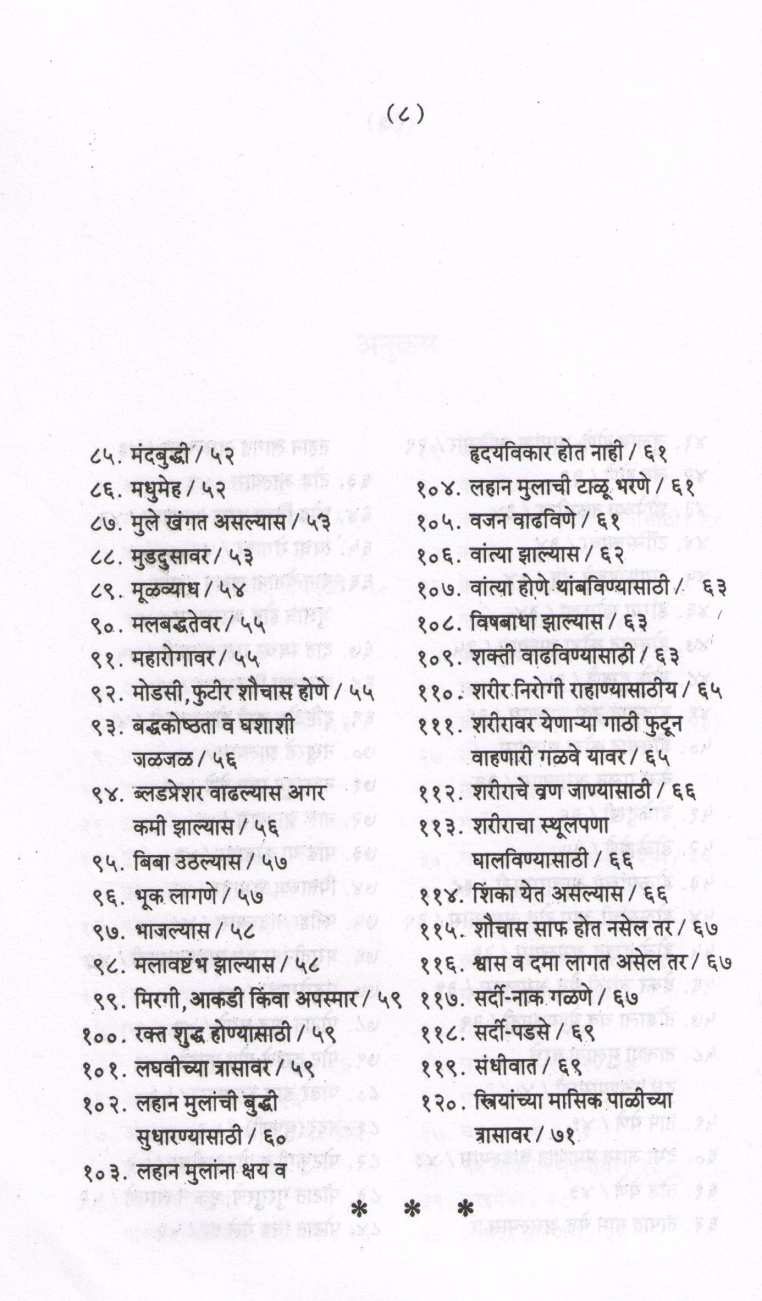 (८)
८५. मंदबुद्धी / ५२
८६. मधुमेह / ५२
८७. मुले खंगत असल्यास / ५३
८८. मुडदुसावर / ५३
८९. मूळव्याध / ५४
९०. मलबद्धतेवर / ५५
९१. महारोगावर / ५५
९२. मोडसी, फुटीर शौचास होणे / ५५
९३. बद्धकोष्ठता व घशाशी
जळजळ / ५६
९४. ब्लडप्रेशर वाढल्यास अगर
कमी झाल्यास / ५६
९५. बिबा उठल्यास / ५७
९६. भूक लागणे / ५७
९७. भाजल्यास / ५८
९८. मलावष्टंभ झाल्यास / ५८
९९. मिरगी, आकडी किंवा अपस्मार / ५९
१००. रक्त शुद्ध होण्यासाठी / ५९
१०१. लघवीच्या त्रासावर / ५९
१०२. लहान मुलांची बुद्धी
सुधारण्यासाठी / ६०
१०३. लहान मुलांना क्षय व
हृदयविकार होत नाही / ६१
१०४. लहान मुलाची टाळू भरणे / ६१
१०५. वजन वाढविणे / ६१
१०६. वांत्या झाल्यास / ६२
१०७. वांत्या होणे थांबविण्यासाठी / ६३
१०८. विषबाधा झाल्यास / ६३
१०९. शक्ती वाढविण्यासाठी / ६३
११०. शरीर निरोगी राहाण्यासाठीय / ६५
१११. शरीरावर येणाऱ्या गाठी फुटून
वाहणारी गळवे यावर / ६५
११२. शरीराचे व्रण जाण्यासाठी / ६६
११३. शरीराचा स्थूलपणा
घालविण्यासाठी / ६६
११४. शिंका येत असल्यास / ६६
११५. शौचास साफ होत नसेल तर / ६७
११६. श्वास व दमा लागत असेल तर / ६७
११७. सर्दी-नाक गळणे / ६७
११८. सर्दी-पडसे / ६९
११९. संधीवात / ६९
१२०. स्त्रियांच्या मासिक पाळीच्या
त्रासावर / ७१
* * *